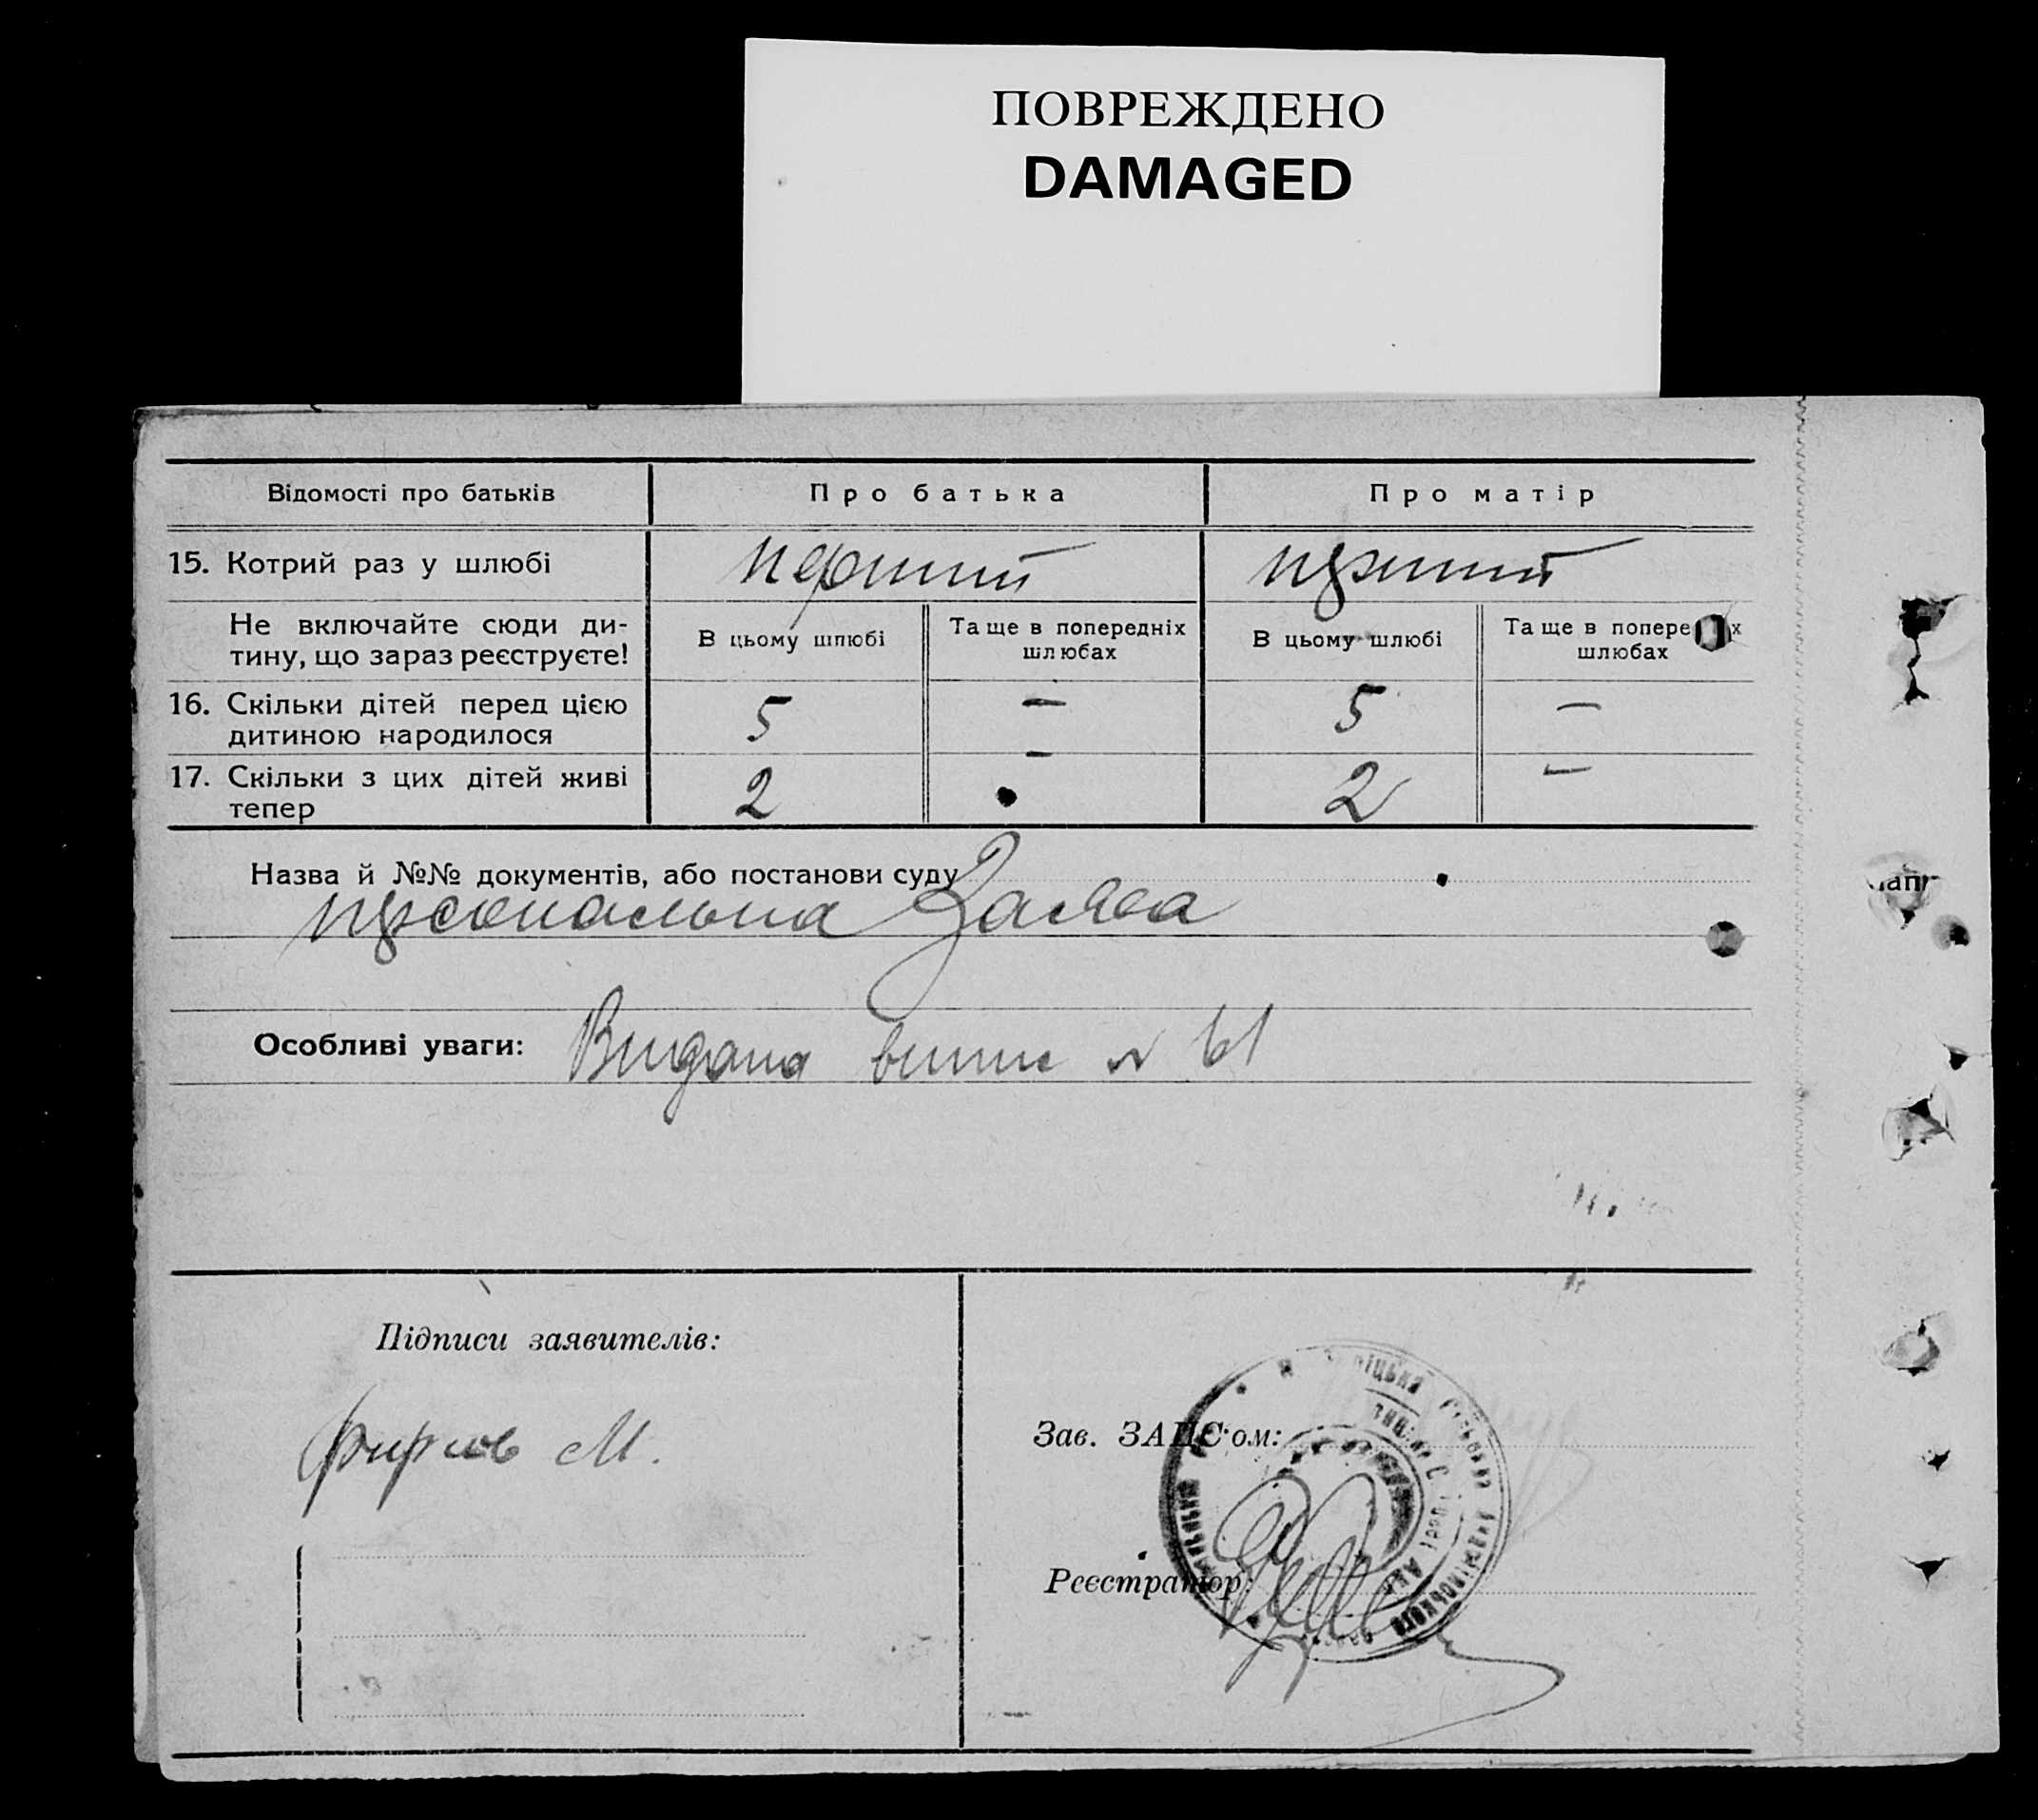 ПОВРЕЖДЕНО
DAMAGED
Відомості про батьків
Про батька
Про матір
15. Котрий раз у шлюбі
перший
перший
Не включайте сюди ди-
тину, що зараз реєструєте!
В цьому шлюбі
Та ще в попередніх
шлюбах
В цьому шлюбі
Та ще в попере х
шлюбах
16. Скільки дітей перед цією
дитиною народилося
5
—
5
—
17. Скільки з цих дітей живі
тепер
2
—
2
—
Назва й №№ документів, або постанови суду
персональна Заява
Особливі уваги: Видана 61
Підписи заявителів:
М.
Зав. ЗАГС'ом:
Реєстратор: